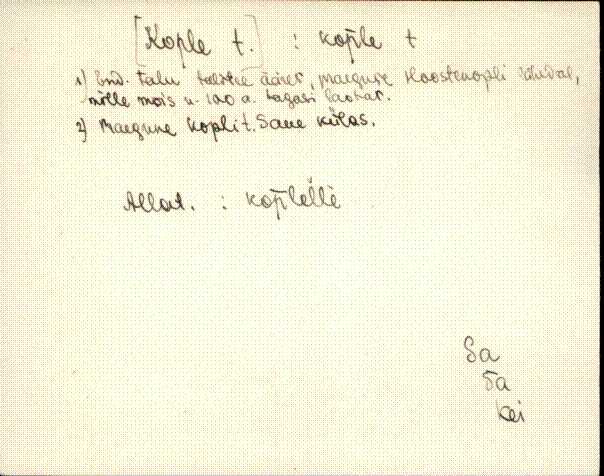 [Kople t.] : kop̄le t
1) End. talu teiste ääres, praeguse Hoostenopli lähedal,
mille mõis u. 100 a. tagasi laotas.
2) Praegune Kopli t. Saue külas.
Allat. : kop̄lel̆l̆e
Sa
Sa
Kei